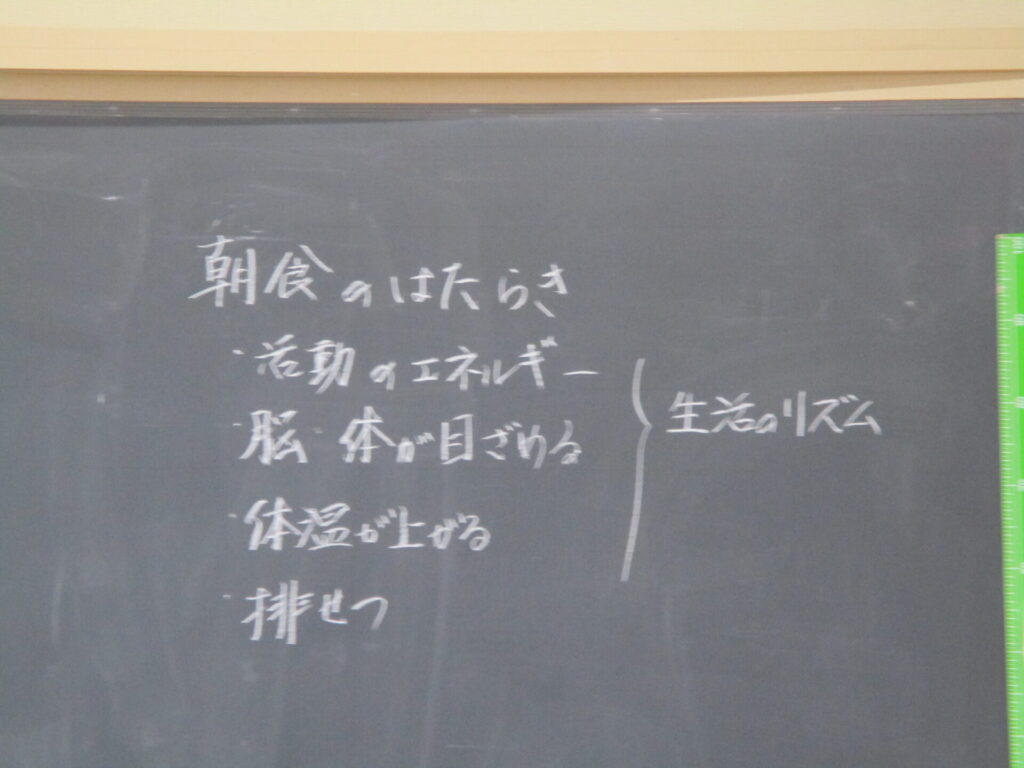 朝食のはたらき
・活動のエネルギー
・脳・体が目ざめる
・体温が上がる
・排せつ
生活のリズム